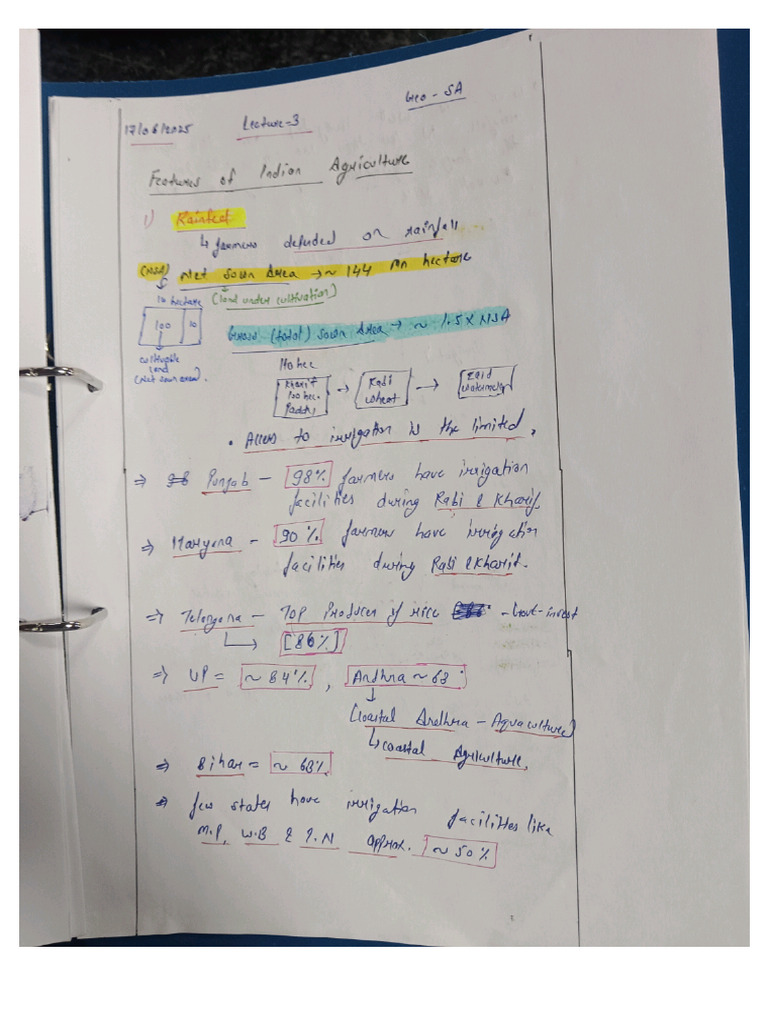 Geo - SA
17/06/2025 Lecture-3
Features of Indian Agriculture
1) Rainfed
↳ farmers depended on rainfall
(NSA) Net Sown Area → ~ 144 Mn hectare
(land under cultivation)
110 hectare
100 10
cultivable
land
(Net sown area).
Gross (total) Sown Area → ~ 1.5 X NSA
110 hec
Kharif → Rabi → Zaid
hec. wheat watermelon
Paddy
• Access to irrigation is the limited.
⇒ Punjab - 98% farmers have irrigation
facilities during Rabi & Kharif.
⇒ Haryana - 90% farmers have irrigation
facilities during Rabi & Kharif.
⇒ Telengana - Top Producer of rice - Govt-invest
[86%]
⇒ UP = ~ 84%, Andhra ~ 63
Coastal Andhra - Aquaculture
↳ coastal Agriculture.
⇒ Bihar = ~ 63%
⇒ few states have irrigation facilities like
M.P, W.B & T.N approx. ~ 50%